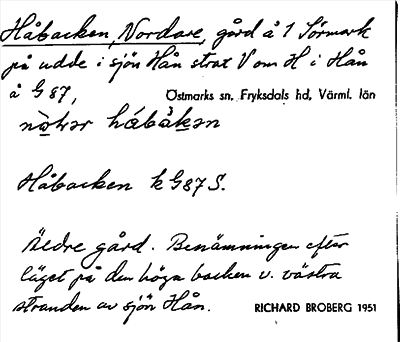 Håbacken, Nordare, gård å 1 Sörmark
på udde i sjön Hån strax V om H i Hån
å G 87,
Östmarks sn, Fryksdals hd, Värml. län
hábàkən
Håbacken k G87 S.
Äldre gård. Benämningen efter
läget på den höga backen v. västra
stranden av sjön Hån.
RICHARD BROBERG 1951